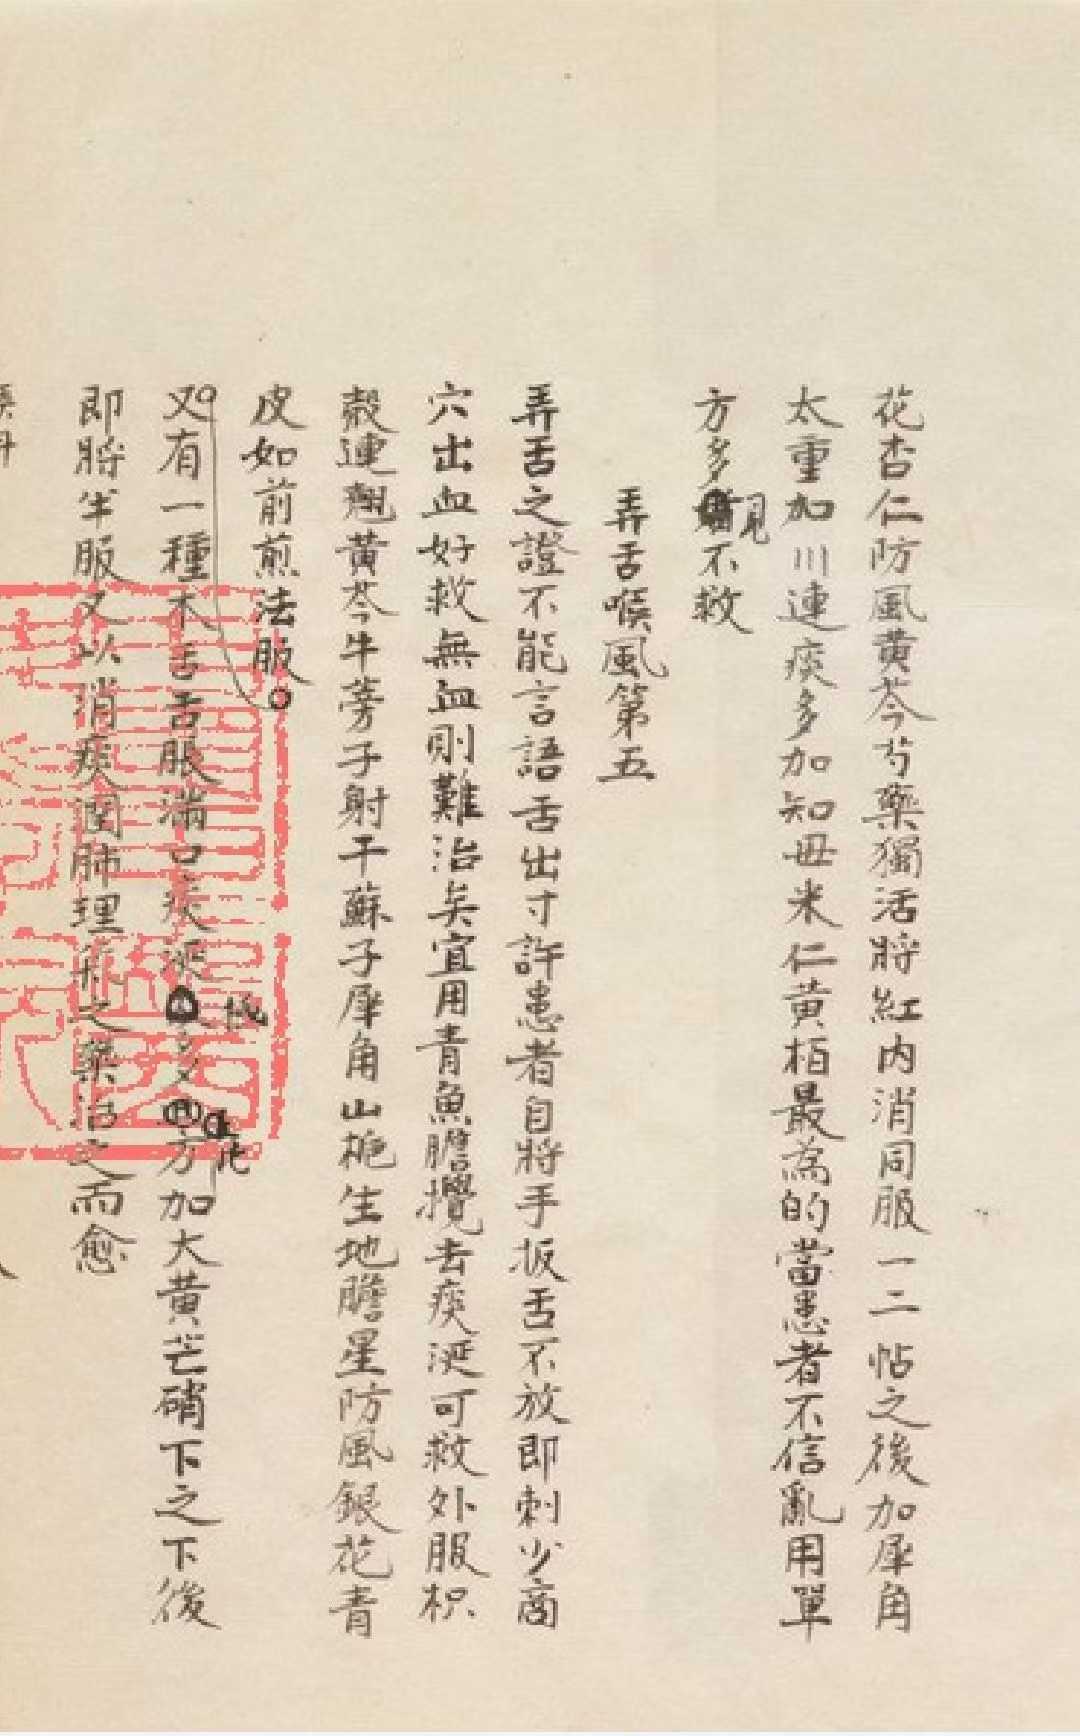 花杏仁防風黄芩芍藥獨活將紅內消同服一二帖之後加犀角
太重加川連痰多加知毋米仁黄栢最為的當患者不信亂用單
方多見不救
弄舌喉風第五
弄舌之證不能言語舌出寸許患者自將手扳舌不放即刺少商
穴出血好救無血則難治矣宜用青魚膽攪去痰涎可救外服枳
殼連翹黄芩牛蒡子射干蘇子犀角山梔生地膽星防風銀花青
皮如前煎法服
又有一種木舌舌脹滿口痰涎多方加大黄芒硝下之下後
即將半服又以消痰潤肺理氣之藥治之而愈